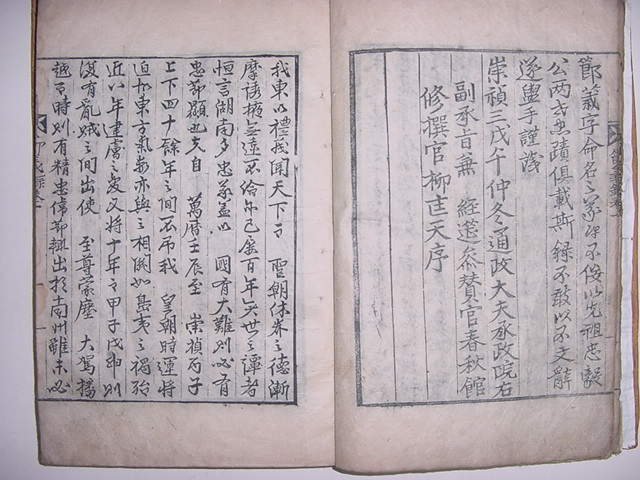 節義字命名之不佞以先祖忠毅
公兩世忠蹟俱載斯錄不敢以不文辭
遂盥手謹識
崇禎三戊午仲冬通政大夫承政院右
副承旨兼 經筵參贊官春秋館
修撰官柳匡天序
我東以禮義聞天下 聖朝休養之德漸
摩誘掖無遠不給百年矣世之譚者
恒言湖南多忠義盖以 國有大難則必有
忠節顯也夫自 萬曆壬辰至 崇禎丙子
上下四十餘年之間不弔我 皇朝時運將
迫如東方氣數亦與之相關如島夷之禍殆
近八年建虜之変又將十年之甲子戊申則
有亂賊之間出使 至尊蒙塵 大駕播
越于時則有精忠偉節輩出於南州雖未必